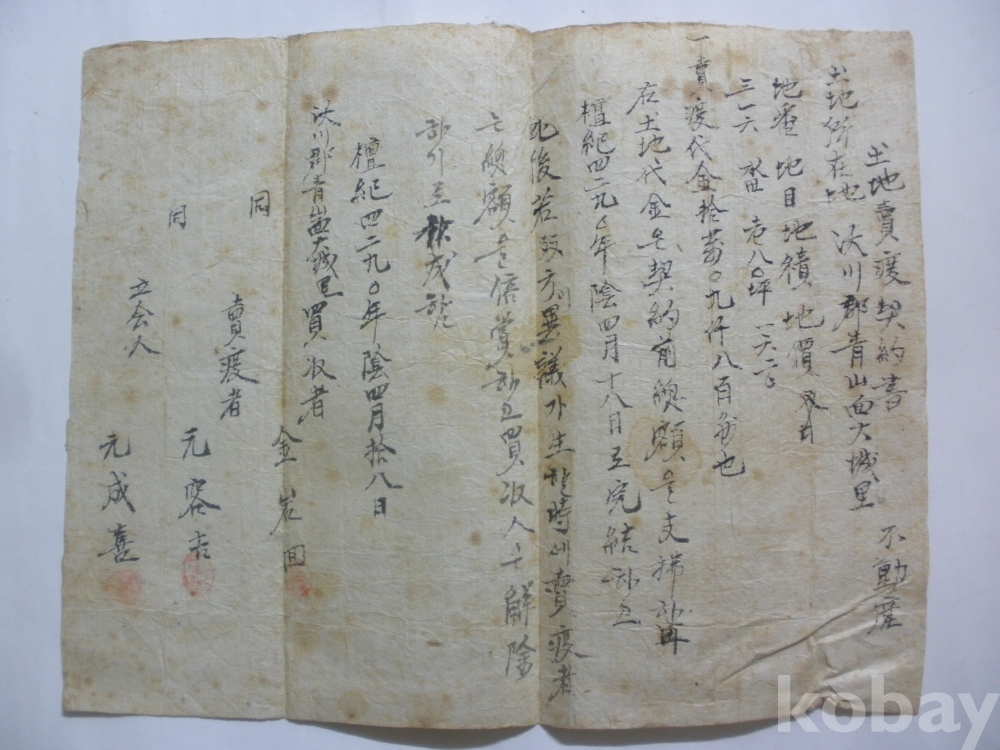 土地賣渡契約書
不動産
土地所在地 沃川郡青山面大城里
地番 地目 地積 地價
三一六 畓 八〇坪
一賣渡代金拾萬〇九仟八百 也
右土地代金은契約前總額을支拂하며
檀紀四二九〇年陰四月十八日로完結하고
此後若 方 異議가生할時에賣渡者
는總額을倍賞하고買收人은解除
하기로 成함
檀紀四二九〇年陰四月拾八日
沃川郡青山面大城里 買收者 金岩回
同 賣渡者 元容吉
同 立会人 元成喜
kobay